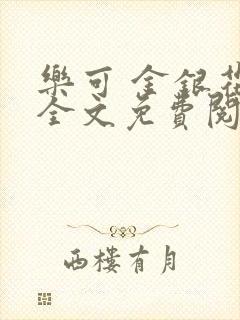 樂可 金銀花
全文免費閱
西樓有月